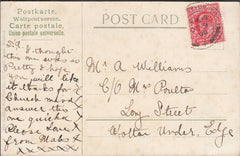 Postkarte.
Weltpostverein.
Carte postale.
Union postale universelle.
POST CARD
Dr A I thought
this one was so
Pretty I hope
you will like
it thanks for
Church
answer this
one quick
Please Love
from Mabs
xxxxxxx
Mr A Williams
C/O Mrs Poulton
Long Street
Wotton Under Edge